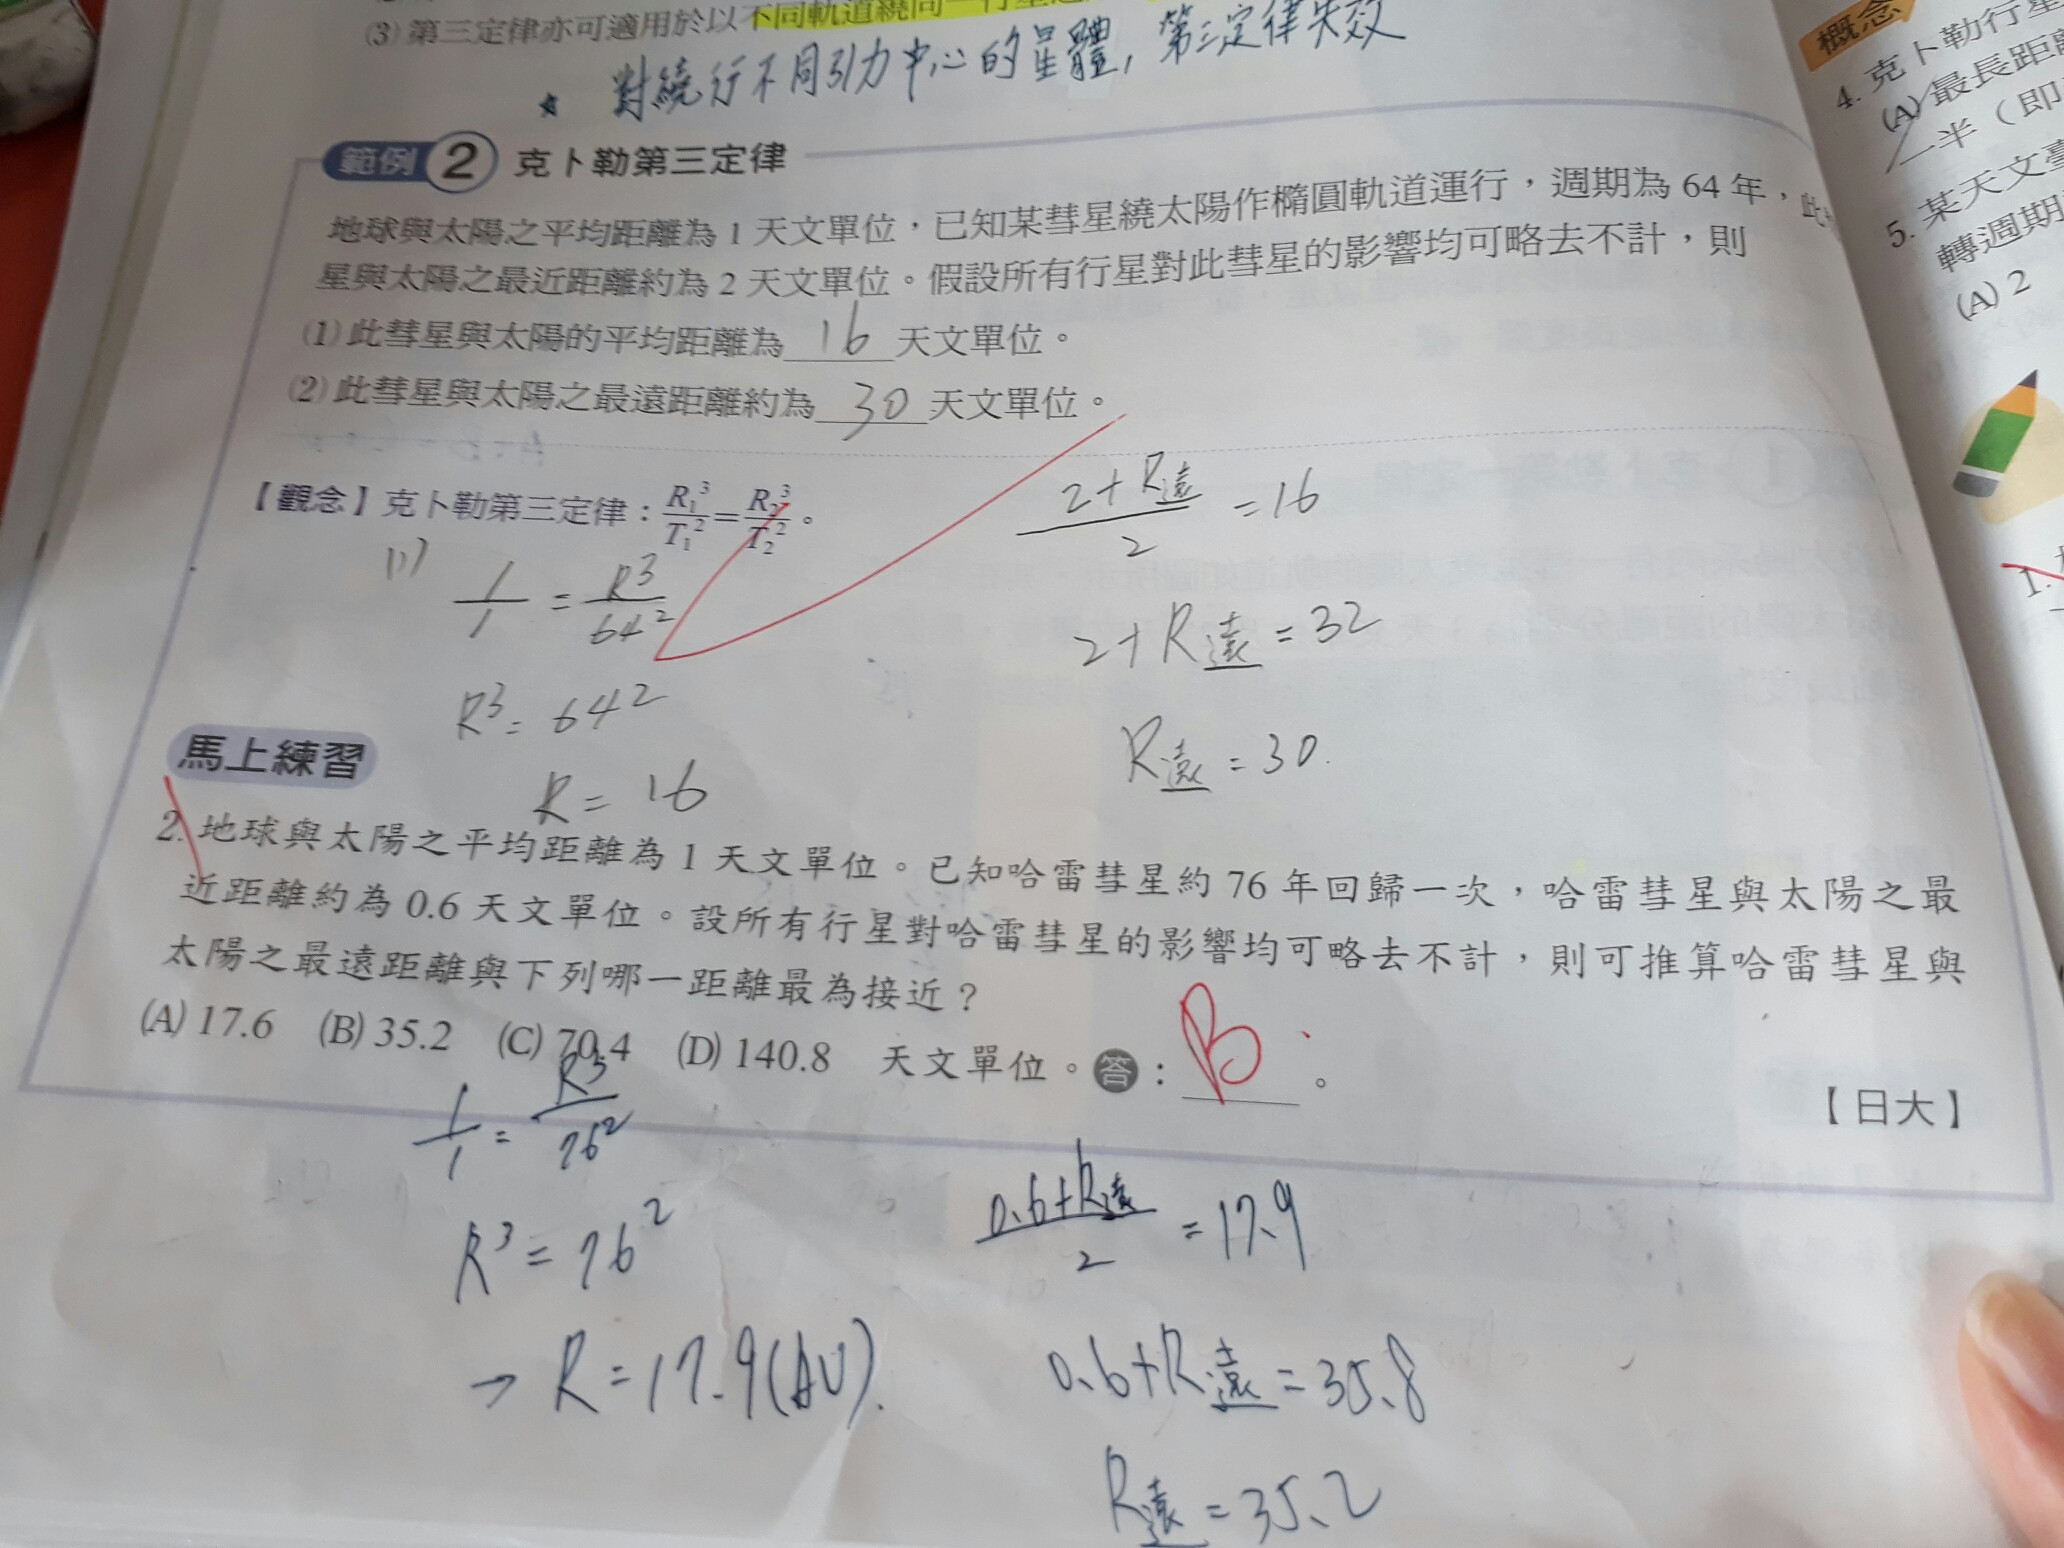 (3) 第三定律亦可適用於以不同軌道繞同一行星
★ 對繞行不同引力中心的星體，第三定律失效
範例 2 克卜勒第三定律
地球與太陽之平均距離為 1 天文單位，已知某彗星繞太陽作橢圓軌道運行，週期為 64 年，此
星與太陽之最近距離約為 2 天文單位。假設所有行星對此彗星的影響均可略去不計，則
(1) 此彗星與太陽的平均距離為 16 天文單位。
(2) 此彗星與太陽之最遠距離約為 30 天文單位。
【觀念】克卜勒第三定律：R₁³/T₁² = R₂³/T₂²。
(1) 1/1 = R³/64²
R³ = 64²
R = 16
(2+R遠)/2 = 16
2+R遠 = 32
R遠 = 30.
馬上練習
2. 地球與太陽之平均距離為 1 天文單位。已知哈雷彗星約 76 年回歸一次，哈雷彗星與太陽之最
近距離約為 0.6 天文單位。設所有行星對哈雷彗星的影響均可略去不計，則可推算哈雷彗星與
太陽之最遠距離與下列哪一距離最為接近？
(A) 17.6 (B) 35.2 (C) 70.4 (D) 140.8 天文單位。答：B。
【日大】
1/1 = R³/76²
R³ = 76²
→ R = 17.9 (AU).
(0.6+R遠)/2 = 17.9
0.6+R遠 = 35.8
R遠 = 35.2
概念
4. 克卜勒行星
(A) 最長距離
一半（即
5. 某天文臺
轉週期
(A) 2
1.